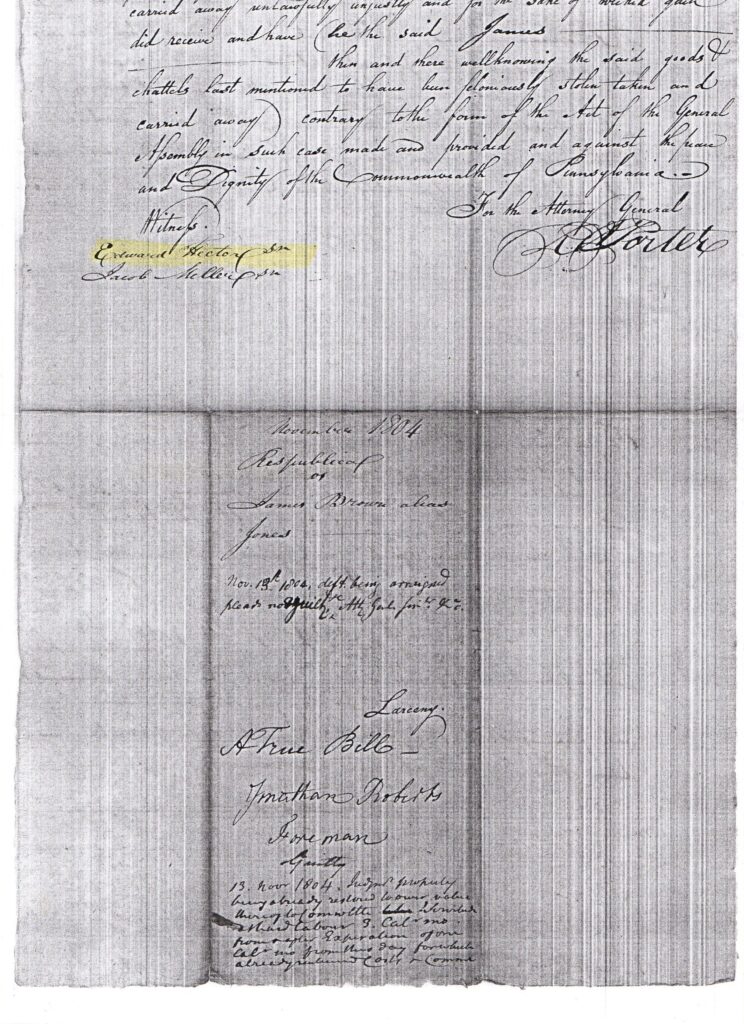 carried away unlawfully unjustly and for the sake of wicked gain
did receive and have (he the said James
then and there wellknowing the said goods &
chattels last mentioned to have been feloniously stolen taken and
carried away) contrary to the form of the Act of the General
Assembly in such case made and provided and against the peace
and Dignity of the Commonwealth of Pennsylvania
Witness.
For the Attorney General
Edward Hector sn
Porter
Jacob sn
November 1804
Respublica
vs
James Brown alias
Jones
Nov. 13th 1804, deft. being arraigned
pleads not guilty &c.
Larceny.
A True Bill
Jonathan Roberts
Foreman
Guilty
13. Novr 1804. Judgmt property
being already restored to owner value
thereof to Commlth
at hard labour 3. Calr mo.
from & after Expiration of one
Calr mo from this day for which
already sentenced Costs & Commd